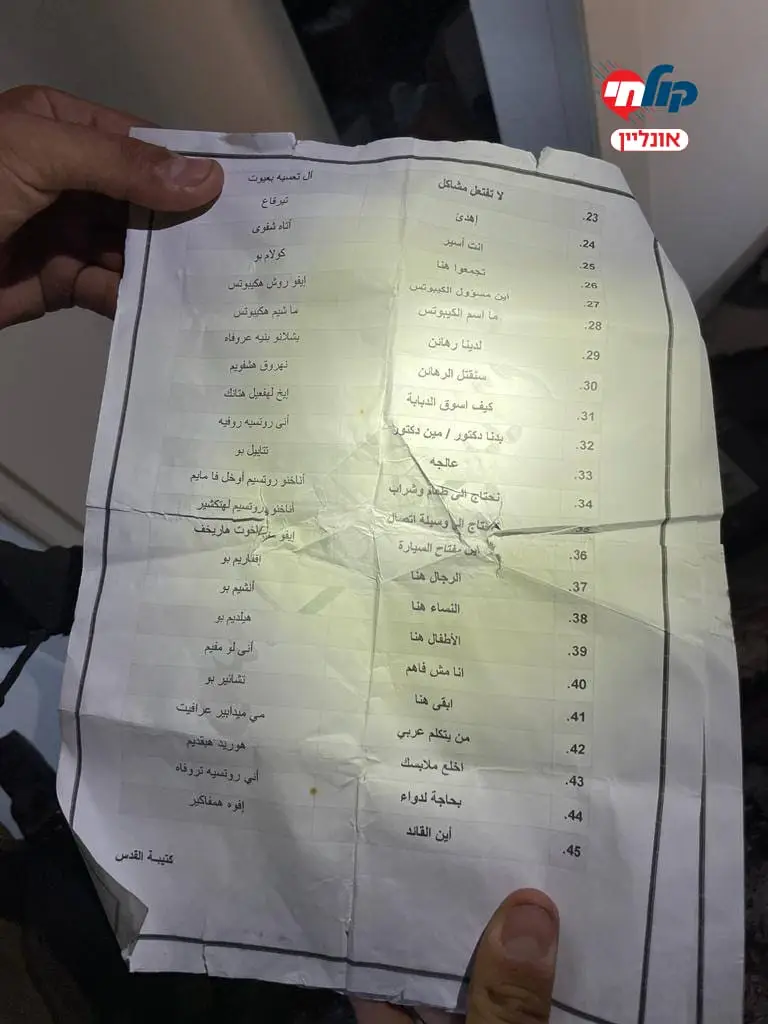 קול חי
אונליין
.23 لا تفتعل مشاكل آل تعسيه بعيوت
.24 إهدئ تيرفاع
.25 انت أسير أتاه شفوى
.26 تجمعوا هنا كولام بو
.27 اين مسؤول الكيبوتس إيفو روش هكيبوتس
.28 ما اسم الكيبوتس ما شيم هكيبوتس
.29 لدينا رهائن يشلانو بنيه عروفاه
.30 سنقتل الرهائن نهروق هشفويم
.31 كيف اسوق الدبابة إيخ لهفعيل هتانك
.32 بدنا دكتور / مين دكتور أنى روتسيه روفيه
.33 عالجه تتاييل بو
.34 نحتاج الى طعام وشراب أناخنو روتسيم أوخل فا مايم
.35 نحتاج إلى وسيلة اتصال أناخنو روتسيم لهتكشير
.36 اين مفتاح السيارة إيفو هاريخف
.37 الرجال هنا إقفاريم بو
.38 النساء هنا أنشيم بو
.39 الأطفال هنا هيلديم بو
.40 انا مش فاهم أنى لو مفيم
.41 ابقى هنا تشائير بو
.42 من يتكلم عربي مي ميدابير عرافيت
.43 اخلع ملابسك هوريد هبقديم
.44 بحاجة لدواء أني روتسيه تروفاه
.45 أين القائد إفوه همفاكير
كتيبة القدس